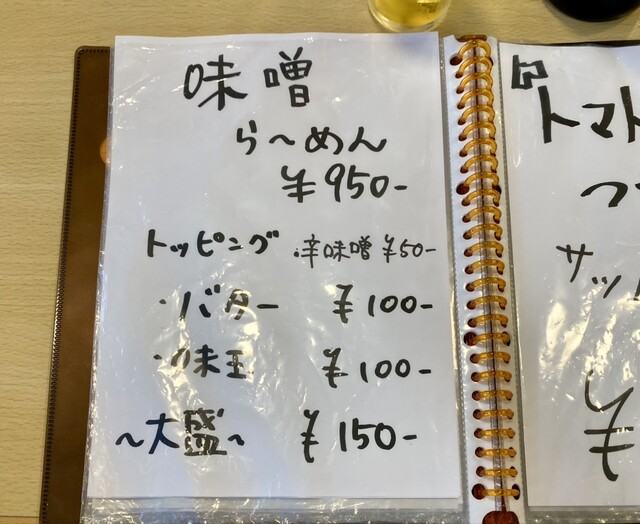 味噌
ら〜めん
¥950-
トッピング ・辛味噌 ¥50-
・バター ¥100-
・味玉 ¥100-
〜大盛〜 ¥150-
トマト
つ
サッ
¥